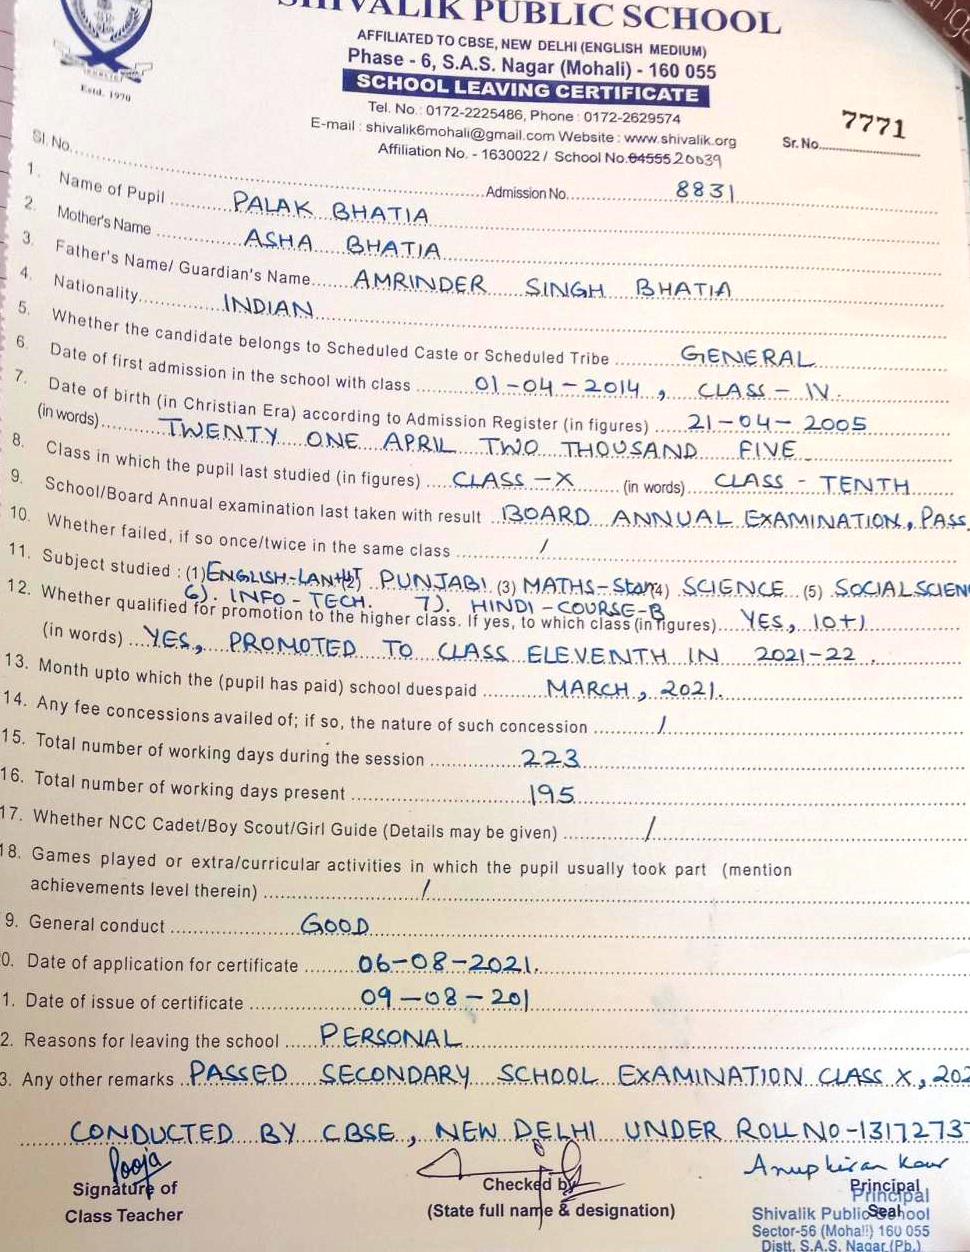 SHIVALIK PUBLIC SCHOOL
AFFILIATED TO CBSE, NEW DELHI (ENGLISH MEDIUM)
Phase - 6, S.A.S. Nagar (Mohali) - 160 055
SCHOOL LEAVING CERTIFICATE
Estd. 1970
Tel. No. : 0172-2225486, Phone : 0172-2629574
E-mail : shivalik6mohali@gmail.com Website : www.shivalik.org
Affiliation No. - 1630022 / School No. 04555 20039
Sr. No. 7771
Sl. No. Admission No. 8831
1. Name of Pupil PALAK BHATIA
2. Mother's Name ASHA BHATIA
3. Father's Name/ Guardian's Name AMRINDER SINGH BHATIA
4. Nationality INDIAN
5. Whether the candidate belongs to Scheduled Caste or Scheduled Tribe GENERAL
6. Date of first admission in the school with class 01-04-2014, CLASS-IV.
7. Date of birth (in Christian Era) according to Admission Register (in figures) 21-04-2005
(in words) TWENTY ONE APRIL TWO THOUSAND FIVE
8. Class in which the pupil last studied (in figures) CLASS-X (in words) CLASS-TENTH
9. School/Board Annual examination last taken with result BOARD ANNUAL EXAMINATION, PASS
10. Whether failed, if so once/twice in the same class /
11. Subject studied : (1) ENGLISH- (2) PUNJABI (3) MATHS-Stan (4) SCIENCE (5) SOCIAL SCIEN
6). INFO-TECH. 7). HINDI-COURSE-B
12. Whether qualified for promotion to the higher class. If yes, to which class (in figures) YES, 10+1
(in words) YES, PROMOTED TO CLASS ELEVENTH IN 2021-22.
13. Month upto which the (pupil has paid) school duespaid MARCH, 2021.
14. Any fee concessions availed of; if so, the nature of such concession /
15. Total number of working days during the session 223
16. Total number of working days present 195
17. Whether NCC Cadet/Boy Scout/Girl Guide (Details may be given) /
18. Games played or extra/curricular activities in which the pupil usually took part (mention
achievements level therein) /
9. General conduct GOOD
0. Date of application for certificate 06-08-2021.
1. Date of issue of certificate 09-08-201
2. Reasons for leaving the school PERSONAL
3. Any other remarks PASSED SECONDARY SCHOOL EXAMINATION CLASS X, 202
CONDUCTED BY CBSE, NEW DELHI UNDER ROLL NO-1317273
Pooja
Signature of
Class Teacher
Checked by
(State full name & designation)
Anupkiran Kaur
Principal
Seal
Principal
Shivalik Public School
Sector-56 (Mohali) 160 055
Distt. S.A.S. Nagar (Pb.)